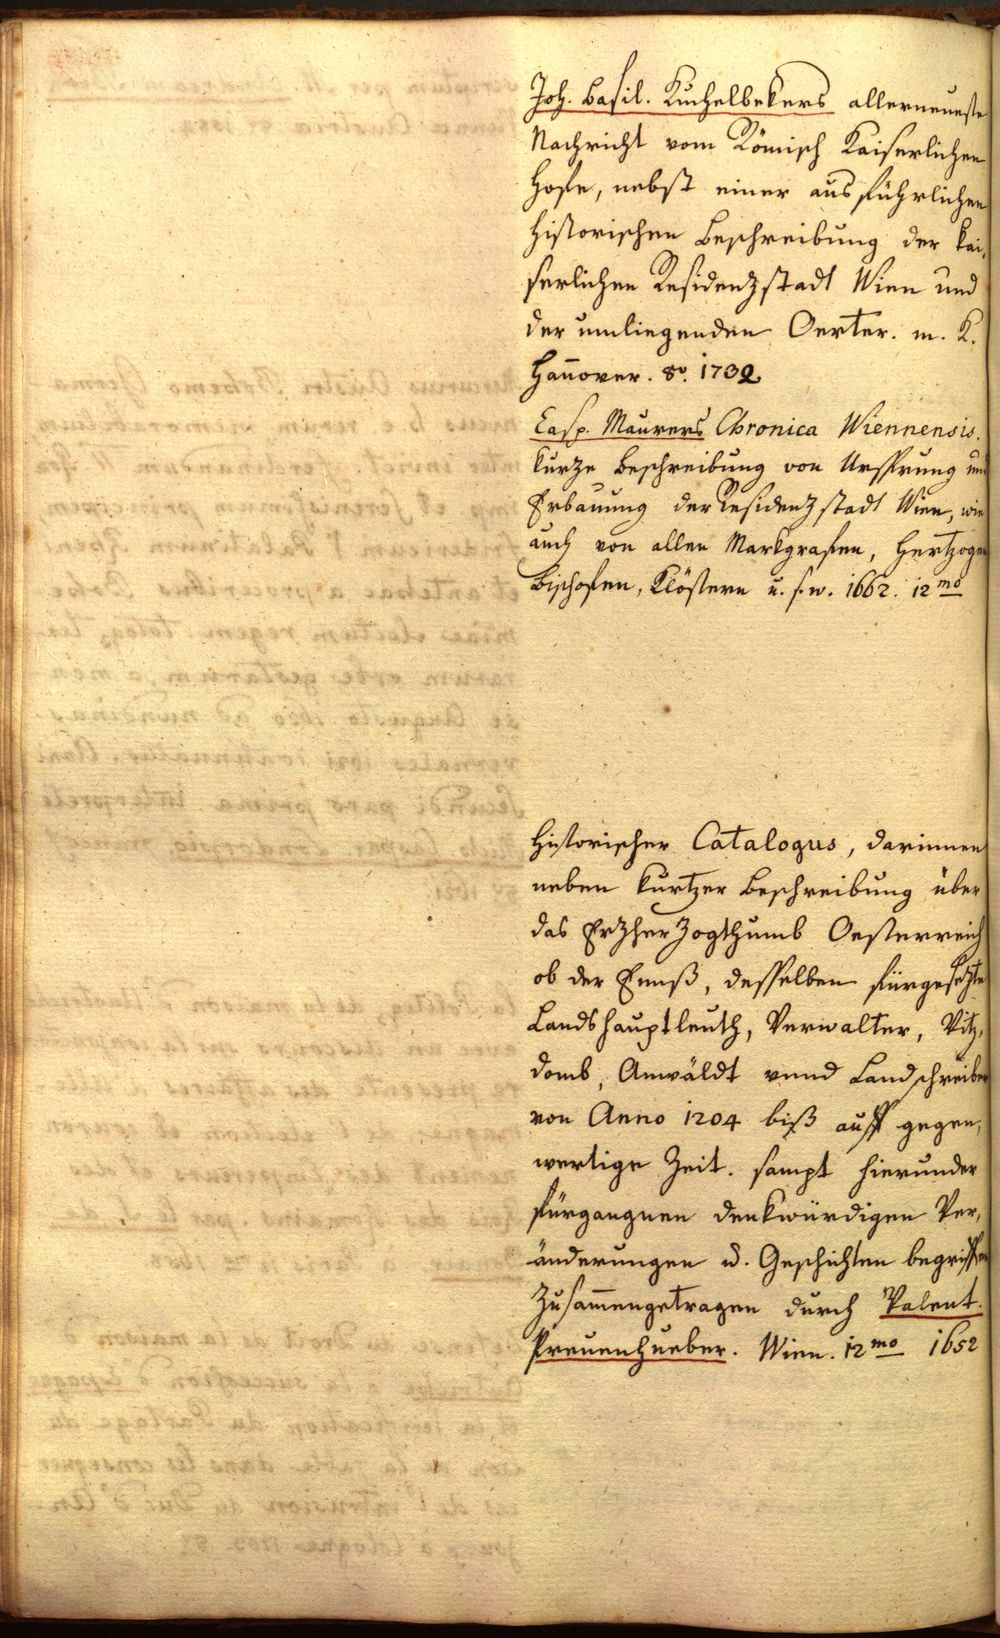 Joh. Basil. Kuchelbekers allerneueste
Nachricht vom Römisch Kaiserlichen
Hofe, nebst einer ausführlichen
historischen Beschreibung der kai,
serlichen Residenzstadt Wien und
der umliegenden Oerter. m. K.
Hannover. 8º. 1732
Casp. Maurers Chronica Wiennensis.
kurze Beschreibung von Ursprung und
Erbauung der Residenzstadt Wien, wie
auch von allen Markgrafen, Hertzogen
Bischofen, Klöstern u. s. w. 1662. 12mo
Historischer Catalogus, darinnen
neben kurtzer Beschreibung über
das Erzherzogthumb Oesterreich
ob der Ennß, desselben fürgesetzte
Landshauptleuth, Verwalter, Vitz,
domb, Anwäldt vnnd Landschreiber
von Anno 1204 biß auff gegen,
wertige Zeit. sampt hierunder
fürgangnen denkwürdigen Ver,
änderungen u. Geschichten begriffen
zusammengetragen durch Valent.
Preuenhueber. Wien. 12mo 1652